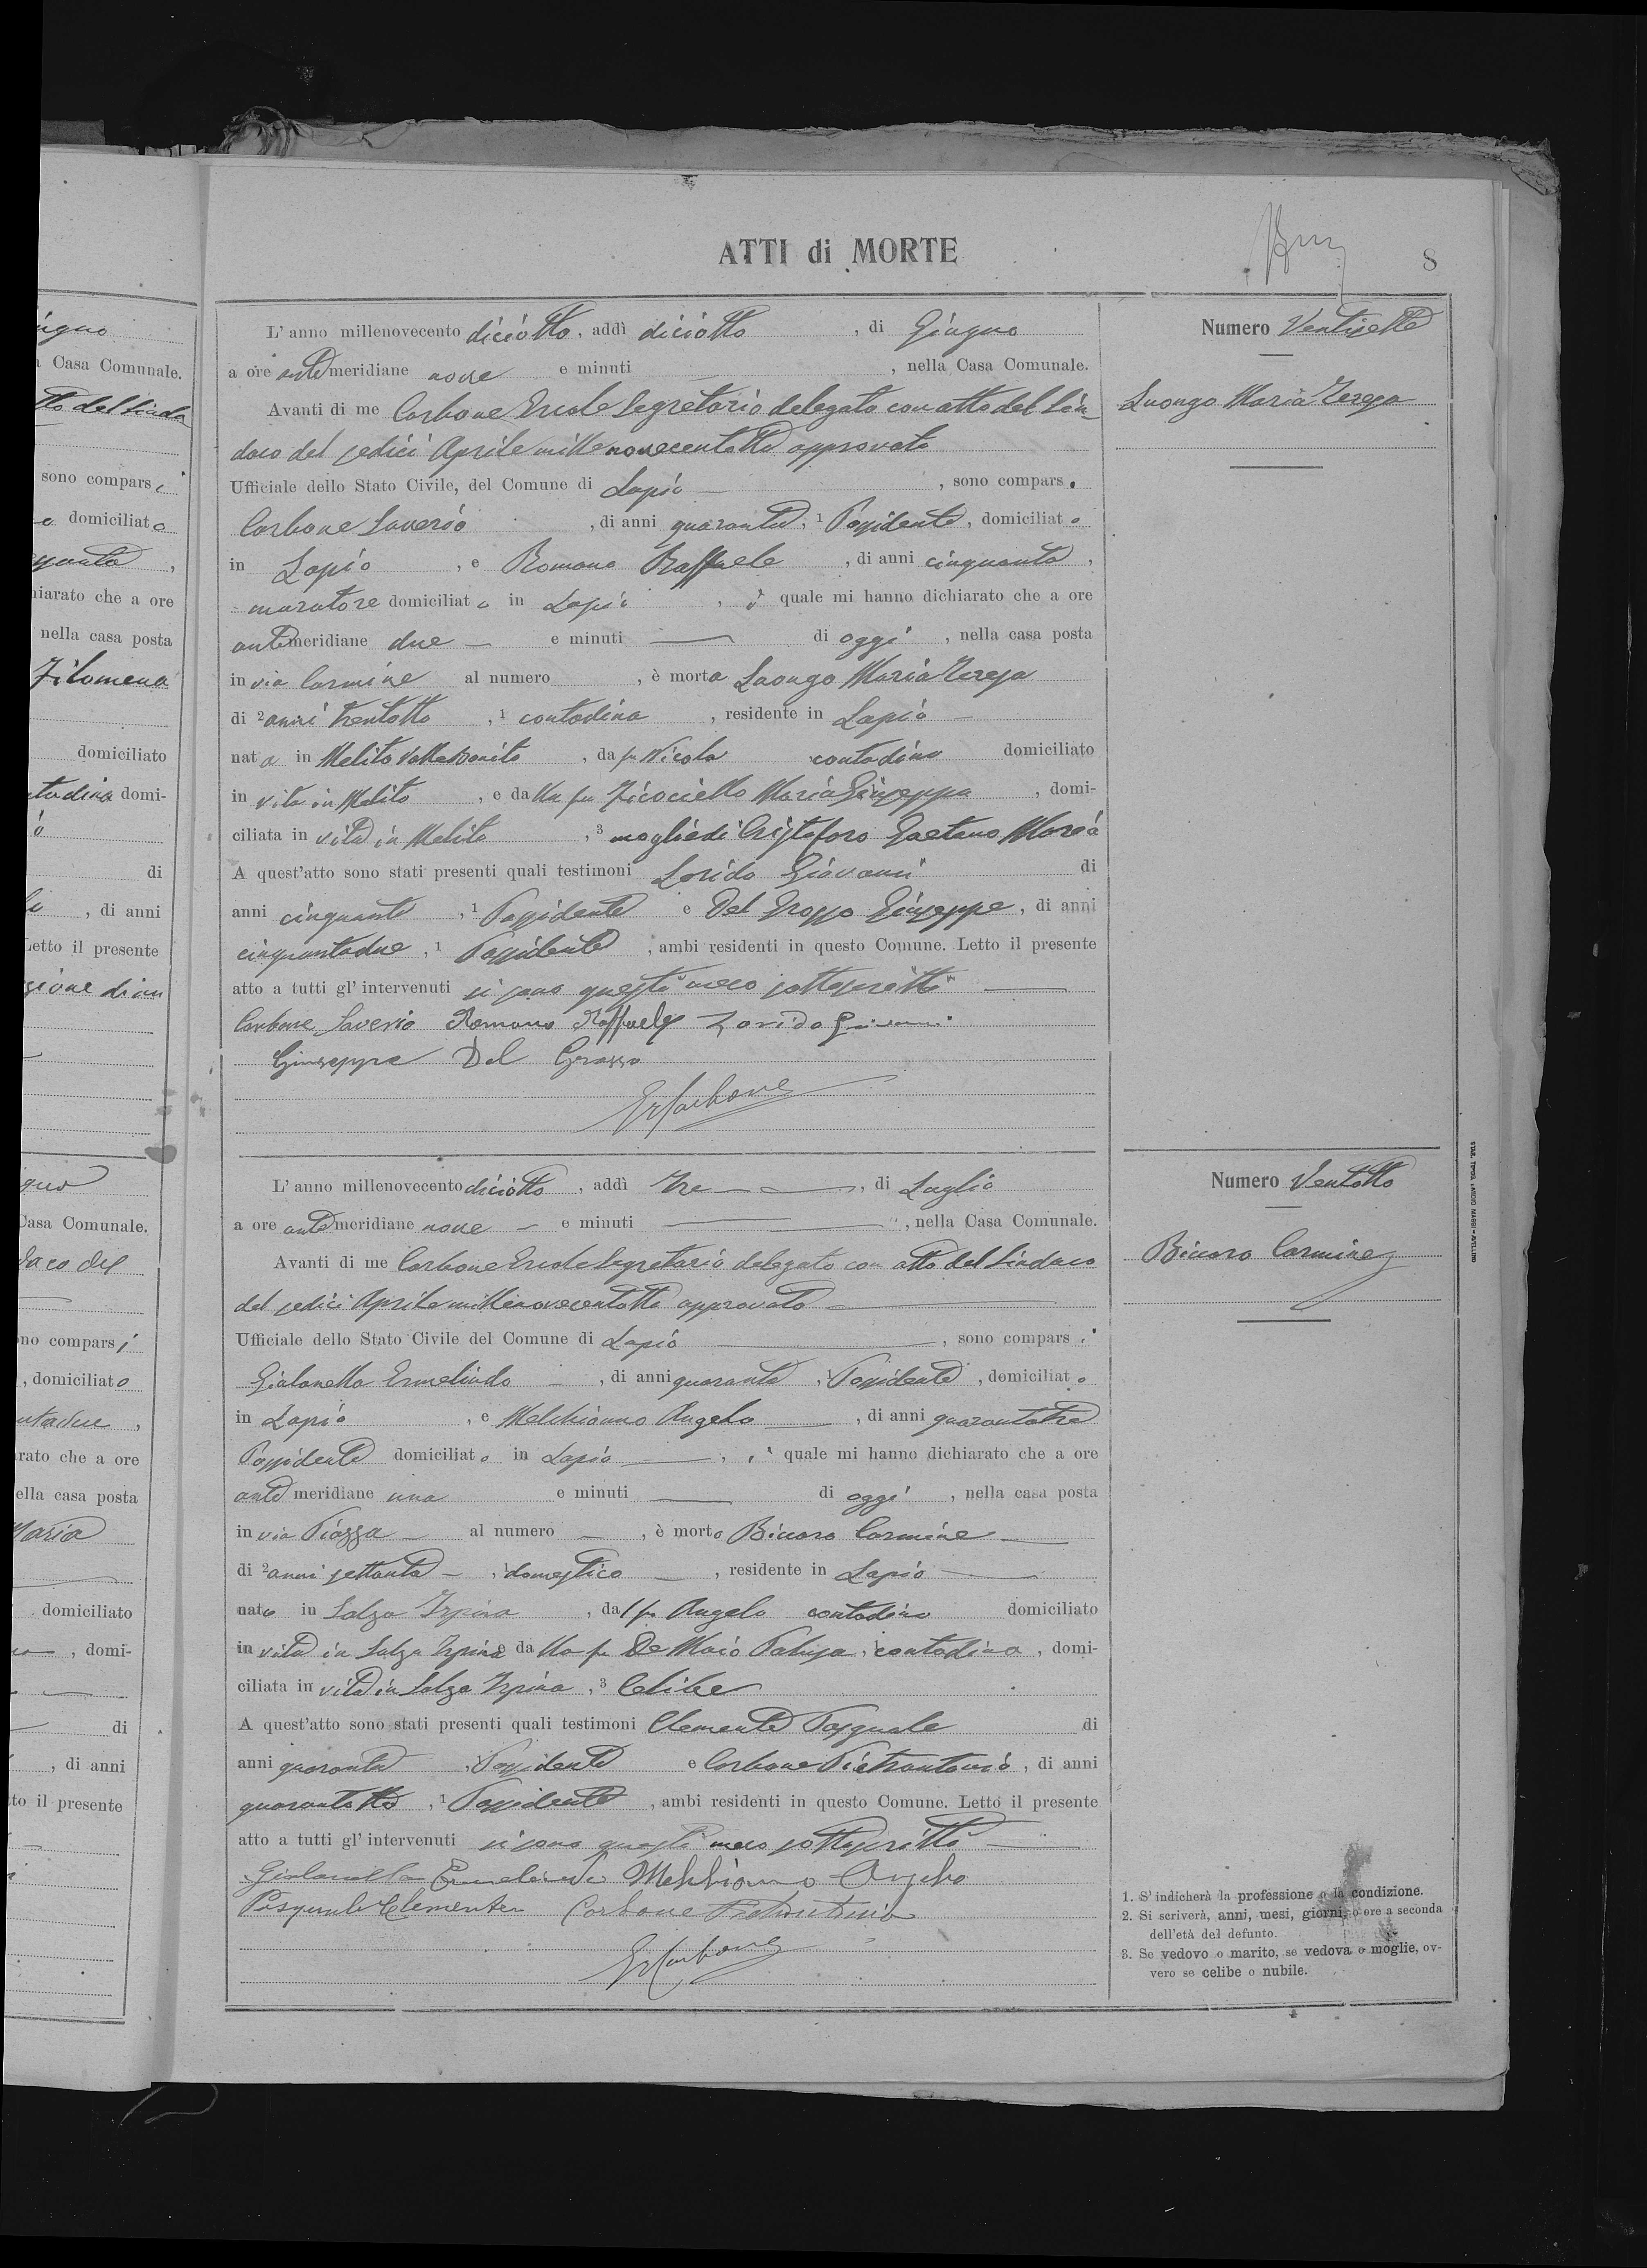 ATTI di MORTE
8
L' anno millenovecento diciotto, addì diciotto, di Giugno
a ore antemeridiane nove e minuti, nella Casa Comunale.
Avanti di me Carbone Ercole Segretario delegato con atto del Sin-
daco del sedici Aprile millenovecentotto approvato
Ufficiale dello Stato Civile, del Comune di Lapio, sono compars.
Carbone Saverio, di anni quaranta, 1 Possidente, domiciliato
in Lapio, e Romano Raffaele, di anni cinquanta,
muratore domiciliato in Lapio, i quale mi hanno dichiarato che a ore
antemeridiane due e minuti di oggi, nella casa posta
in via Carmine al numero, è morta Luongo Maria Teresa
di 2 anni trentotto, 1 contadina, residente in Lapio
nata in Melito Valle Bonito, da fu Nicola contadino domiciliato
in vita in Melito, e dalla fu Maria Giuseppa, domi-
ciliata in vita in Melito, 3 moglie di Cristoforo Gaetano Maria
A quest'atto sono stati presenti quali testimoni Lorido Giovanni di
anni cinquanta, 1 Possidente e Del Grosso Giuseppe, di anni
cinquantadue, 1 Possidente, ambi residenti in questo Comune. Letto il presente
atto a tutti gl' intervenuti si sono questi meco sottoscritti
Carbone Saverio Romano Raffaele Lorido Giovanni
Giuseppe Del Grosso
ErCarbone
Numero Ventisette
Luongo Maria Teresa
L' anno millenovecento diciotto, addì tre, di Luglio
a ore antemeridiane nove e minuti, nella Casa Comunale.
Avanti di me Carbone Ercole Segretario delegato con atto del Sindaco
del sedici Aprile millenovecentotto approvato
Ufficiale dello Stato Civile del Comune di Lapio, sono comparsi
Gialanella Ermelindo, di anni quaranta, 1 Possidente, domiciliato
in Lapio, e Melchionno Angelo, di anni quarantatre
Possidente domiciliato in Lapio, i quale mi hanno dichiarato che a ore
antemeridiane una e minuti di oggi, nella casa posta
in via Piazza al numero, è morto Bicaro Carmine
di 2 anni settanta, 1 domestico, residente in Lapio
nato in Salza Irpina, dal fu Angelo contadino domiciliato
in vita in Salza Irpina e dalla fu De Maio, contadina, domi-
ciliata in vita in Salza Irpina, 3 Celibe
A quest'atto sono stati presenti quali testimoni Clemente Pasquale di
anni quaranta, 1 Possidente e Carbone Pietrantonio, di anni
quarantotto, 1 Possidente, ambi residenti in questo Comune. Letto il presente
atto a tutti gl' intervenuti si sono questi meco sottoscritti
Gialanella Ermelindo Melchionno Angelo
Pasquale Clemente Carbone Pietrantonio
ErCarbone
Numero Ventotto
Bicaro Carmine
1. S' indicherà la professione o la condizione.
2. Si scriverà, anni, mesi, giorni, o ore a seconda
dell'età del defunto.
3. Se vedovo o marito, se vedova o moglie, ov-
vero se celibe o nubile.